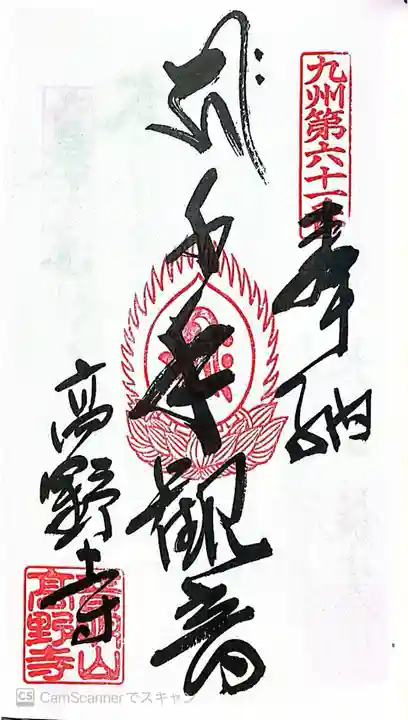 九州第六十一番
奉納
千手観音
高野寺
高野寺
CS CamScannerでスキャン